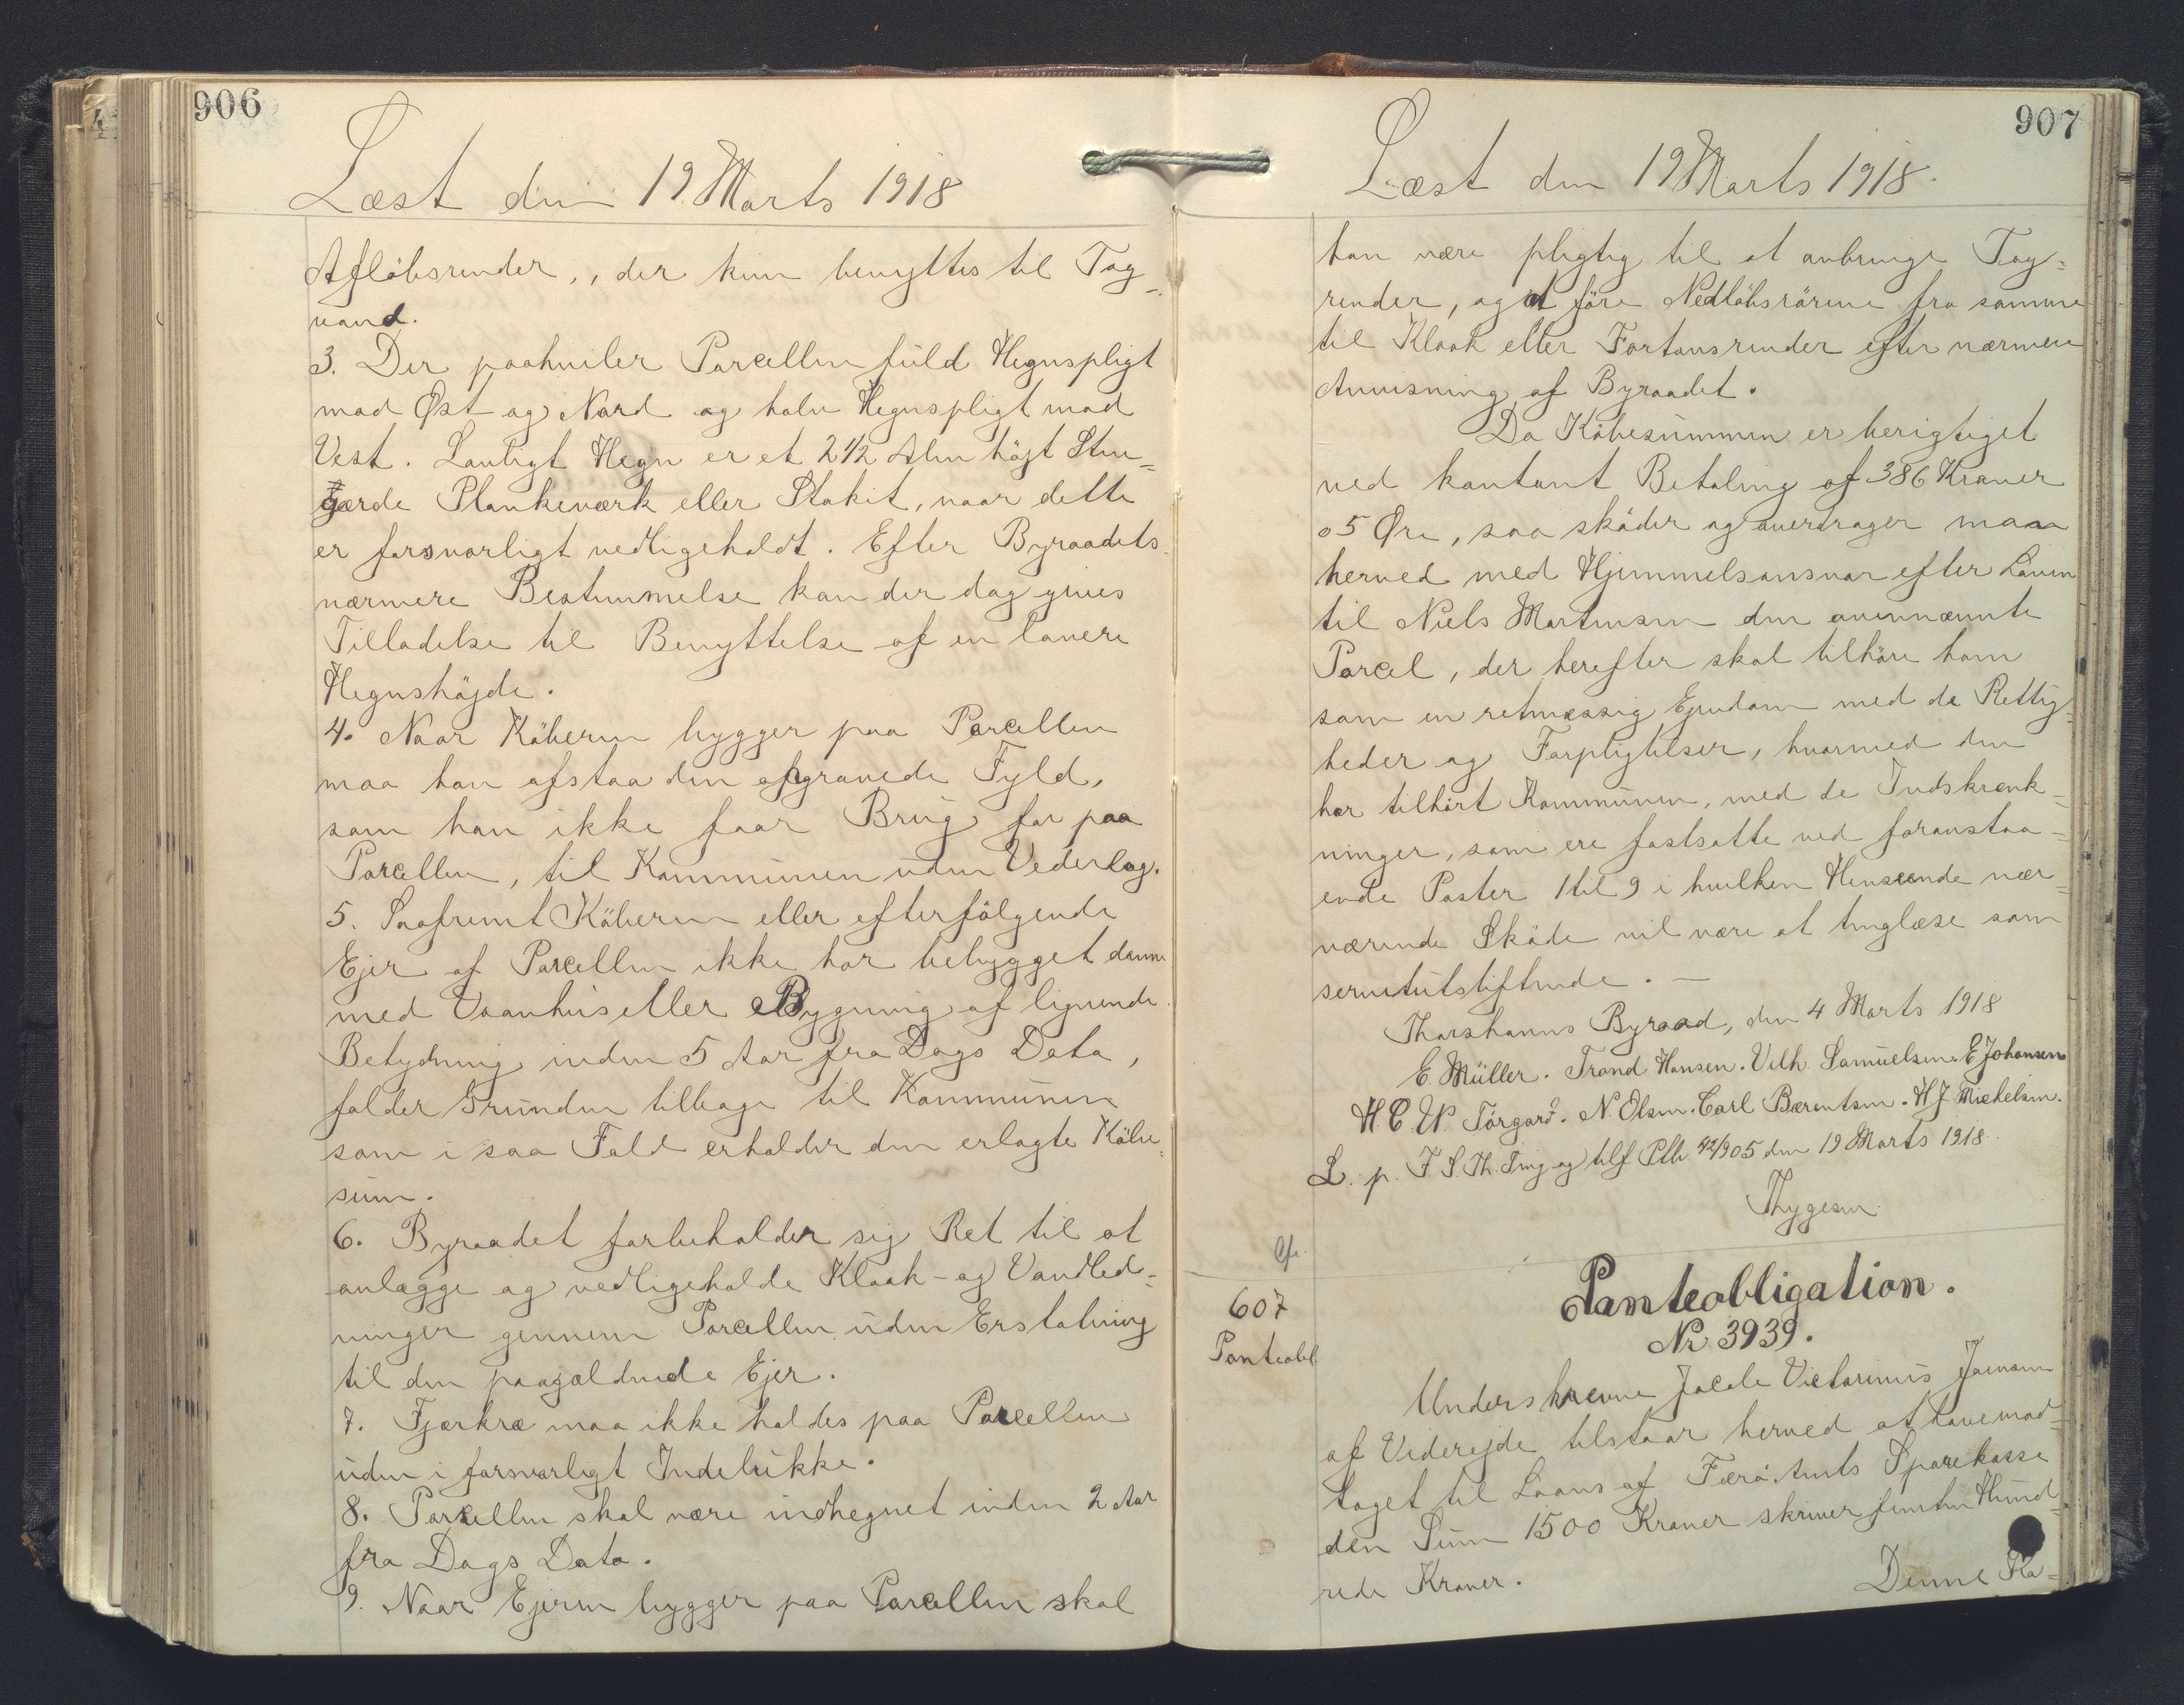 906
Læst den 19. Marts 1918
Aflöbsrender,, der kun benyttes til Tag-
vand.
3. Der paahviler Parcellen fuld Hegnspligt
mod Øst og Nord og halv Hegnspligt mod
Vest. Lovligt Hegn er et 2 1/2 Alen höjt Sten-
gjærde Plankeværk eller Stakit, naar dette
er forsvarligt vedligeholdt. Efter Byraadets
nærmere Bestemmelse kan der dog gives
Tilladelse til Benyttelse af en lavere
Hegnshöjde.
4. Naar Köberen bygger paa Parcellen
maa han afstaa den afgravede Fyld,
som han ikke faar Brug for paa
Parcellen, til Kommunen uden Vederlag.
5. Saafremt Köberen eller efterfölgende
Ejer af Parcellen ikke har bebygget denne
med Vaanhus eller Bygning af lignende
Betydning inden 5 Aar fra Dags Dato,
falder Grunden tilbage til Kommunen
som i saa Fald erholder den erlagte Köbe-
sum.
6. Byraadet forbeholder sig Ret til at
anlægge og vedligeholde Kloak- og Vandled-
ninger gennem Parcellen uden Erstatning
til den paagældende Ejer.
7. Fjerkræ maa ikke holdes paa Parcellen
uden i forsvarligt Indelukke.
8. Parcellen skal være indhegnet inden 2 Aar
fra Dags Dato.
9. Naar Ejeren bygger paa Parcellen skal
907
Læst den 19 Marts 1918.
han være pligtig til at anbringe Tag-
render, og at före Nedlöbsrörene fra samme
til Kloak eller Fortovsrender efter nærmere
Anvisning af Byraadet.
Da Köbesummen er berigtiget
ved kontant Betaling af 386 Kroner
05 Øre, saa sköder og overdrager man
herved med Hjemmelsansvar efter Loven
til Niels Mortensen den ovennævnte
Parcel, der herefter skal tilhöre ham
som en retmæssig Ejendom med de Rettig-
heder og Forpligtelser, hvormed den
har tilhört Kommunen, med de Indskrænk-
ninger, som ere fastsatte ved foranstaa-
ende Poster 1 til 9 i hvilken Henseende nær-
værende Sköde vil være at tinglæse som
servitutstiftende. —
Thorshavns Byraad, den 4 Marts 1918
E. Müller. Trond Hansen. Vilh. Samuelsen. E Johansen
H. C. W. Tórgarð. N. Olsen. Carl Bærentsen. H J Mickelsen.
L. p. F. S. Th. Ting og tilf Ptb. 42/905 den 19 Marts 1918.
Thygesen.
Cfr.
607
Panteobl.
Panteobligation.
Nr. 3939.
Underskrevne Jacob Victorinus Joensen
af Viderejde tilstaar herved at have mod-
taget til Laans af Færö Amts Sparekasse
den Sum 1500 Kroner skriver femten Hund-
rede Kroner.
Denne Ka-